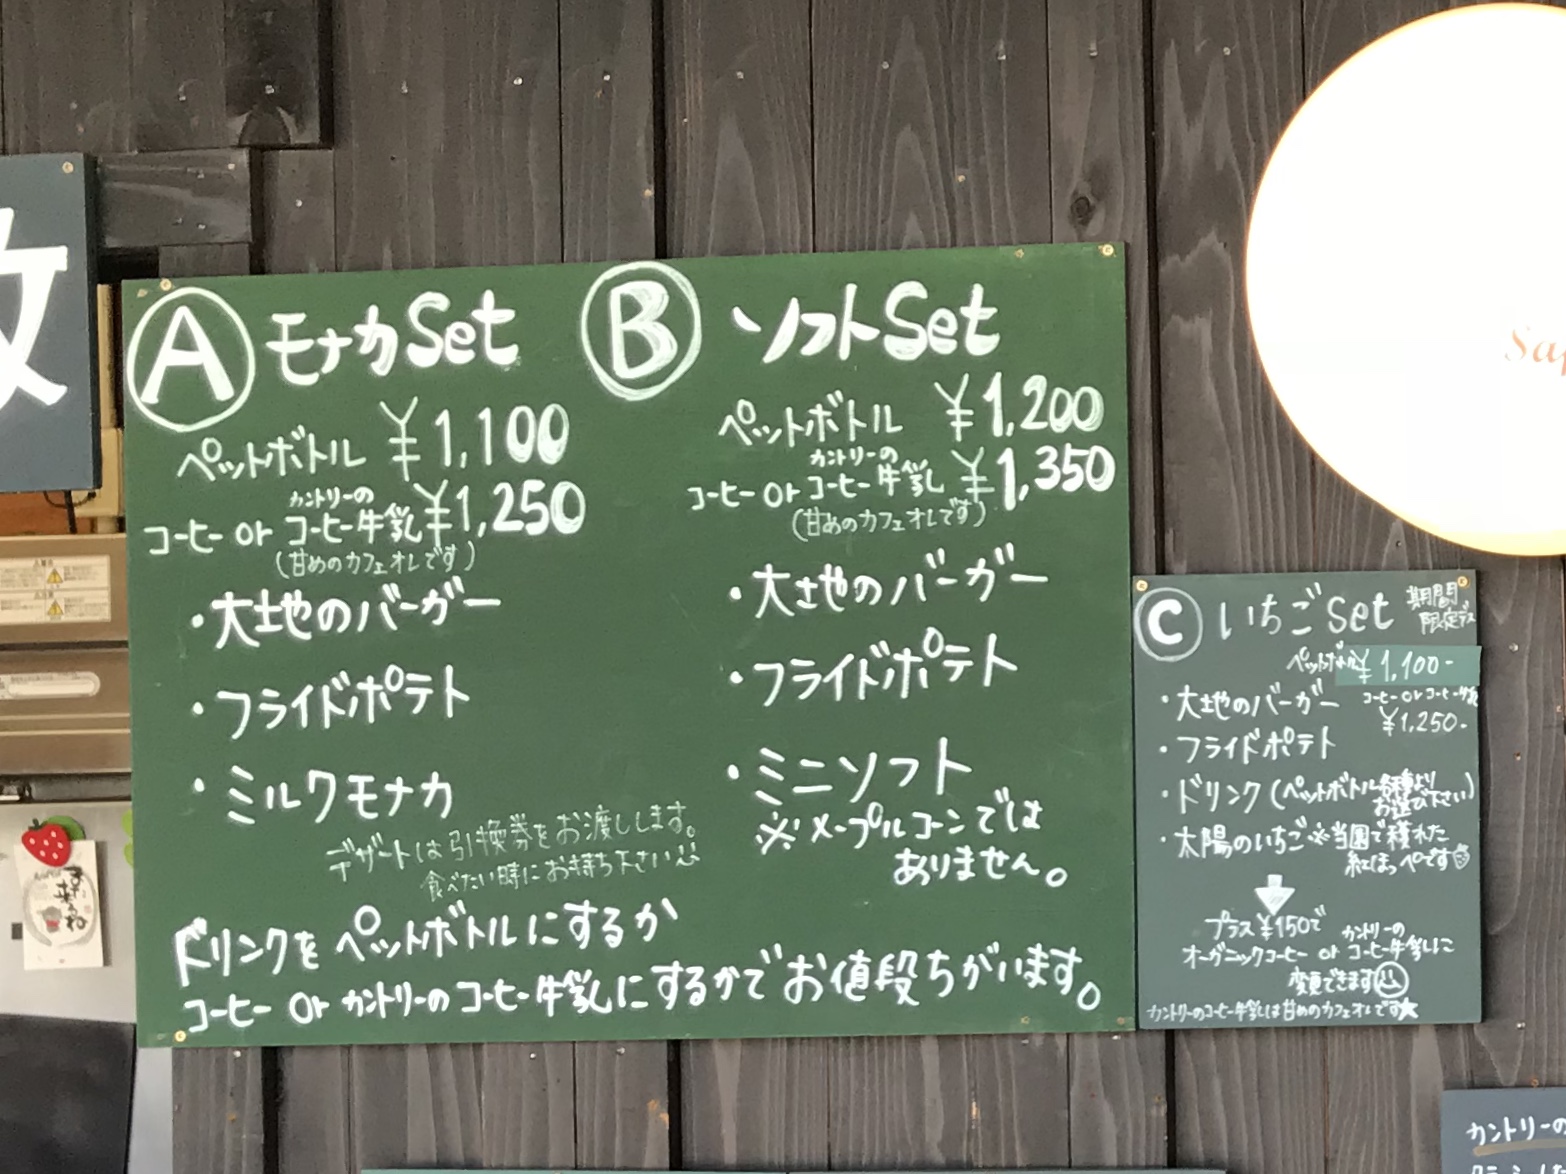 A モナカSet
ペットボトル ¥1,100
カントリーの
コーヒー or コーヒー牛乳 ¥1,250
(甘めのカフェオレです)
・大地のバーガー
・フライドポテト
・ミルクモナカ
デザートは引換券をお渡しします。
食べたい時にお持ち下さい
B ソフトSet
ペットボトル ¥1,200
カントリーの
コーヒー or コーヒー牛乳 ¥1,350
(甘めのカフェオレです)
・大地のバーガー
・フライドポテト
・ミニソフト
※メープルコーンでは
ありません。
ドリンクをペットボトルにするか
コーヒー or カントリーのコーヒー牛乳にするかでお値段ちがいます。
C いちごSet 期間
限定デス
ペットボトル ¥1,100-
・大地のバーガー コーヒー or コーヒー牛乳
¥1,250-
・フライドポテト
・ドリンク(ペットボトル各種より
お選び下さい)
・太陽のいちご ※当園で穫れた
紅ほっぺです
プラス¥150で カントリーの
オーガニックコーヒー or コーヒー牛乳に
変更できます
カントリーのコーヒー牛乳は甘めのカフェオレです★
カントリーの